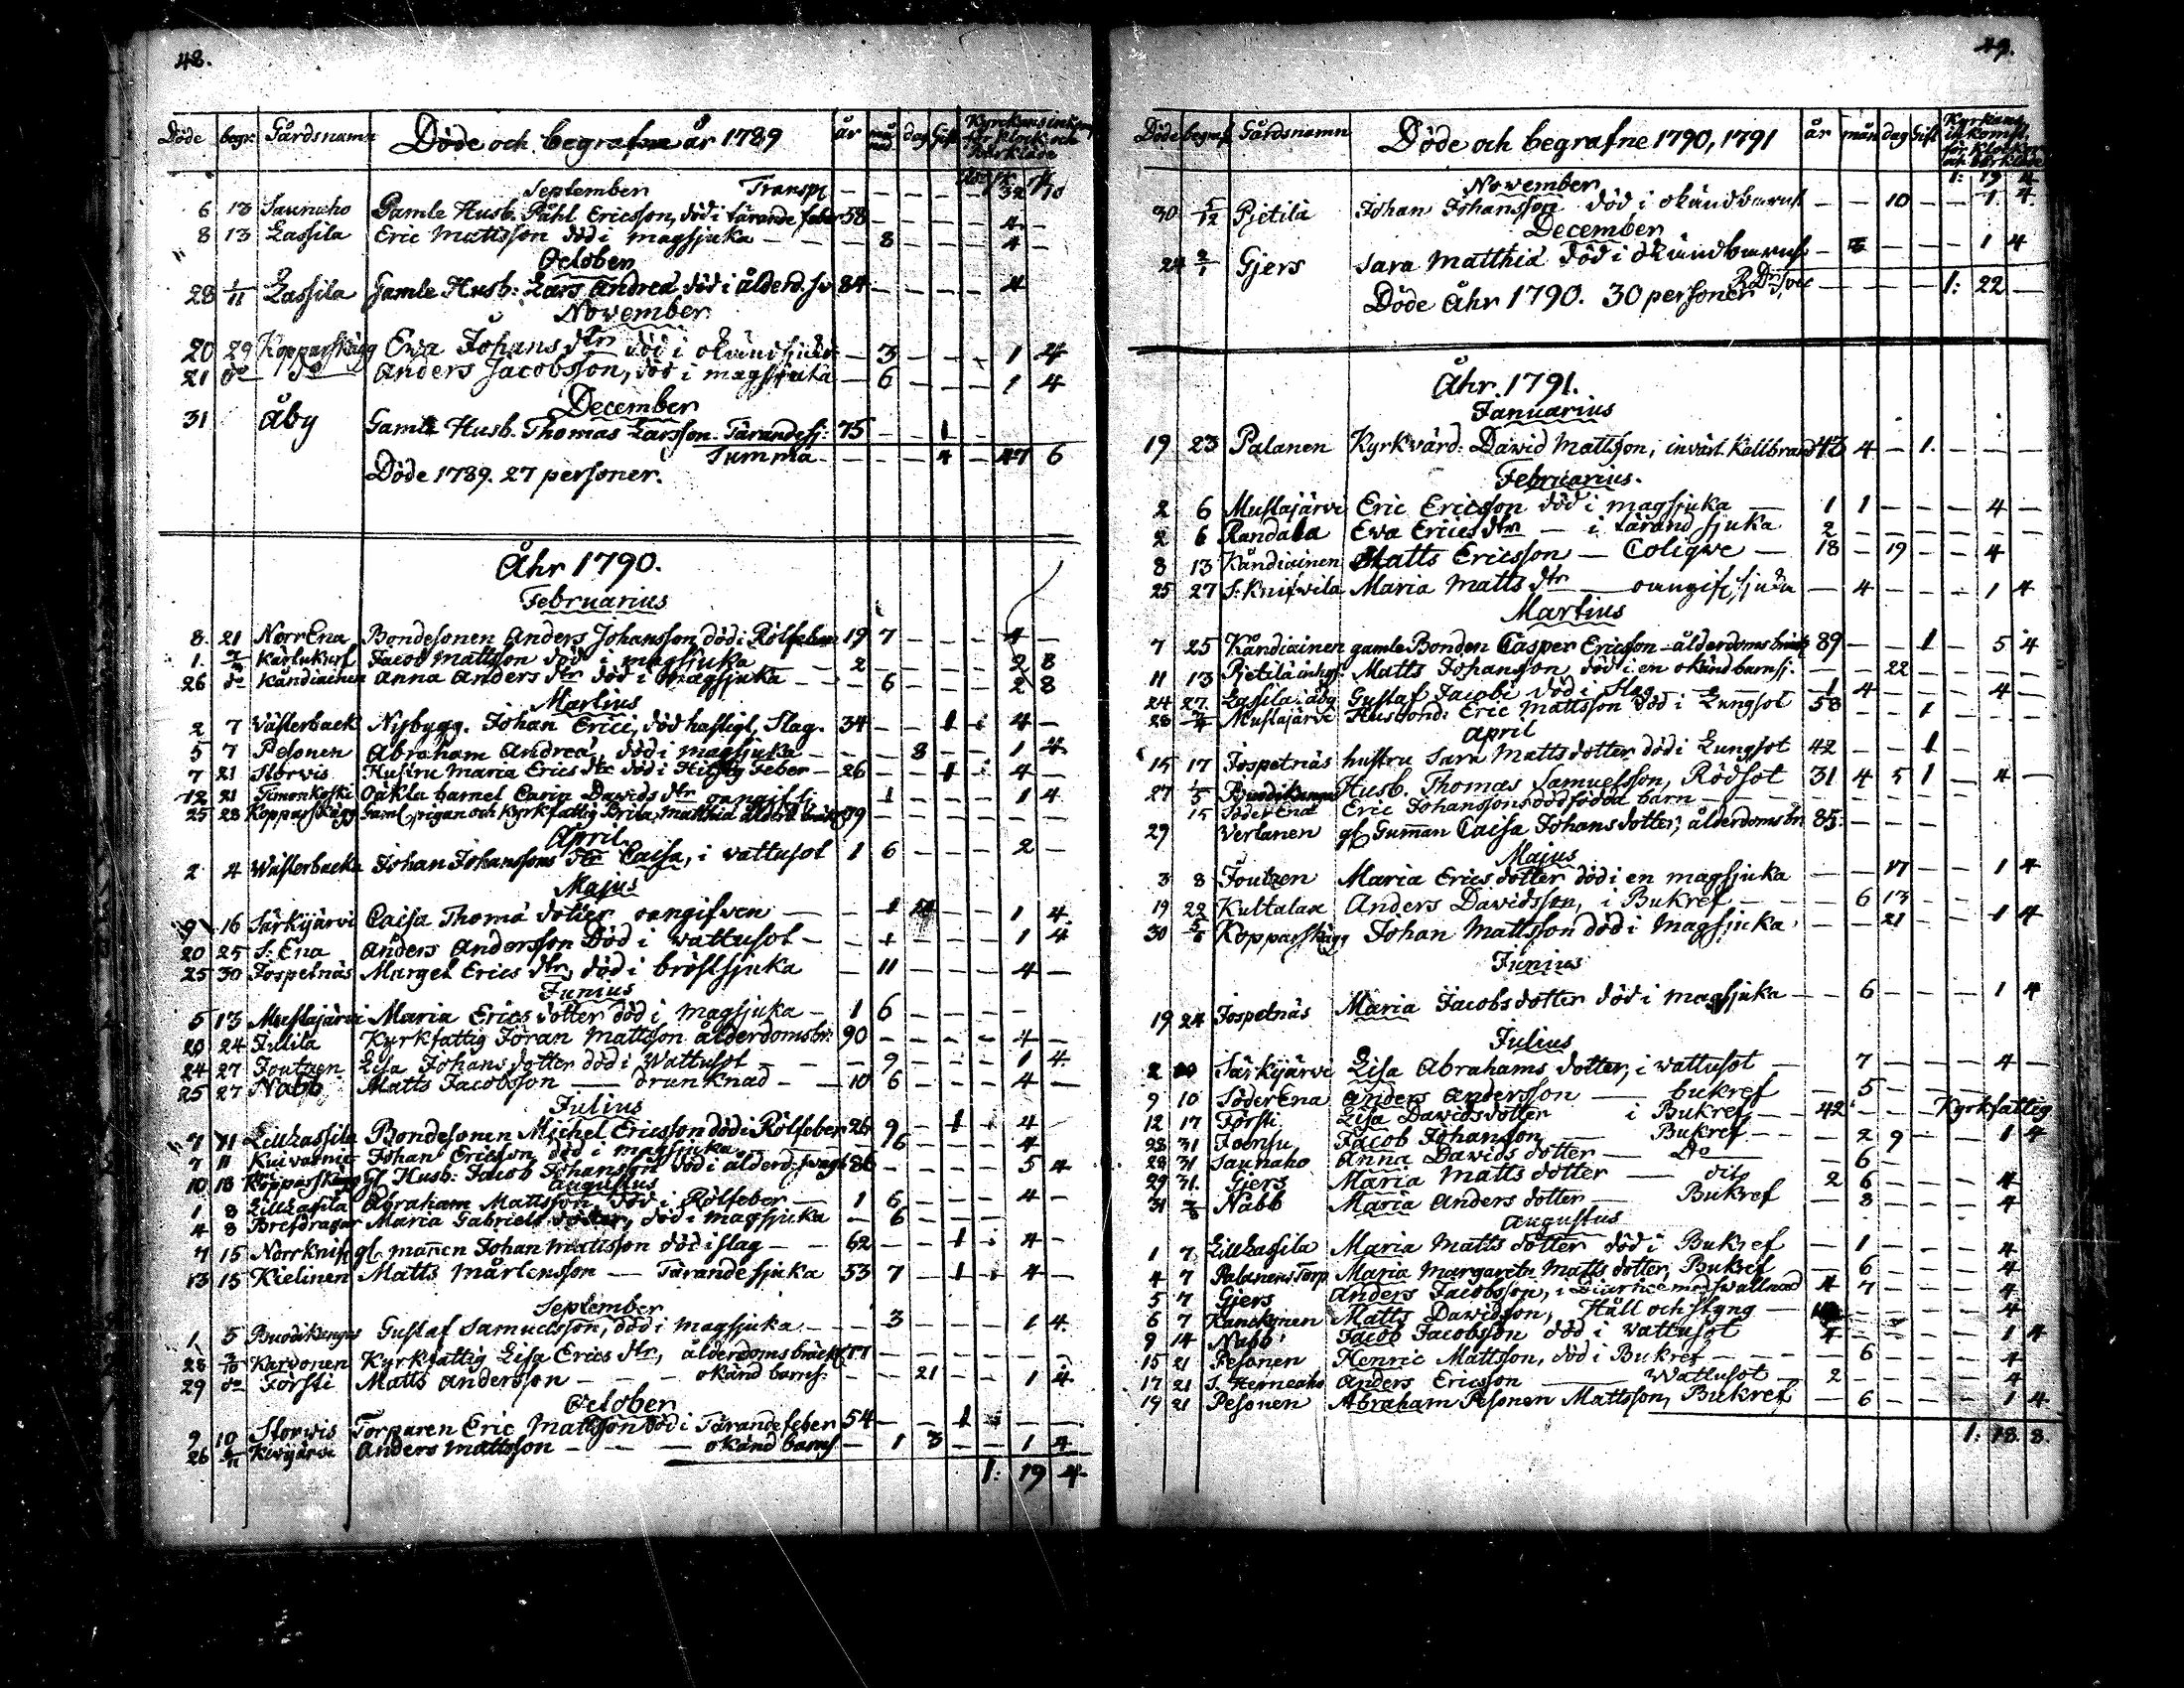 48.
Döde begr. Gårdsnamn Döde och begrafne år 1789 år månad dag Gift Kyrckans inkomst för klock och Bårkläde
September Transp. — — — — 32 10
6 13 Saunaho Gamle Husb. Påhl Ericsson, död i tärande feber 58 — — — 4 —
8 13 Lassila Eric Mattsson död i magsjuka — — — 8 — — 4 —
October
28 1/11 Lassila Gamle Husb: Lars Andreæ död i ålderd. sv. 84 — — — 4
November
20 29 Kopparskägg Ewa Johans dtr död i okänd sjuka — 3 — — — 1 4
21 do do Anders Jacobsson, död i magsjuka — 6 — — — 1 4
December
31 Åby Gamle Husb. Thomas Larsson. Tärandesj: 75 — — 1 —
Summa — — — — 4 — 47 6
Döde 1789. 27 personer.
Åhr 1790.
Februarius
8. 21 NorrEna Bondesonen Anders Johansson död i Rötfeber 19 7 — — — 4 —
1. 7/3 Karlukurf Jacob Mattsson död i magsjuka — — 2 — — — — 2 8
26 do Kåndiainen Anna Anders dtr död i magsjuka — — — 6 — — — 2 8
Martius
2 7 Wästerback Nybygg. Johan Erici, död hastigt, Slag. 34 — — 1 1 4 —
5 7 Pesonen Abraham Andreæ, död i magsjuka — — — 8 — — 1 4
7 21 Storwis Hustru Maria Erics dtr död i Hitzig Feber — 26 — — 1 — 4 —
12 21 Timonkoski Oäkta barnet Carin Dawids dtr oangif. sj: — 1 — — — 1 4
25 28 Kopparskägg Gaml pigan och Kyrkfattig Brita Matthiæ ålderd. bräckl 79 — — — — — —
April
2 4 Wästerbacka Johan Johanssons dtr Caisa, i wattusot 1 6 — — — 2 —
Majus
9 16 Särkijärvi Caisa Thomæ dotter oangifven — — 1 14 — — 1 4.
20 25 S: Ena Anders Andersson Död i wattusot — — 1 — — — 1 4
25 30 Jospetnäs Marget Erics dtr, död i bröstsjuka — 11 — — — 4 —
Junius
5 13 Mustajärvi Maria Erics dotter död i magsjuka — 1 6 — — — —
20 24 Julila Kyrkfattig Jöran Mattsson ålderdomsbr: 90 — — — — 4 —
24 27 Joutzen Lisa Johans dotter död i Wattusot — — 9 — — — 1 4.
25 27 Nabb Matts Jacobsson — drunknad — — 10 6 — — — 4 —
Julius
7 11 Lilllassila Bondesonen Michel Ericsson död i Rötfeber 26 9 — 1 1 4 —
7 11 Kuivaniar Johan Ericsson död i magsjuka — 6 — — — 4
10 18 Kopparskägg Gl. Husb: Jacob Johansson död i ålderd: svagh 86 — — — — 5 4
Augustus
1 8 Lilllasila Abraham Mattsson död i Rötfeber — 1 6 — — — 4 —
4 8 Brefdragar Maria Gabriels dotter, död i magsjuka — 6 — — —
7 15 Norrknif gl. mannen Johan Mattsson död i slag — — 62 — — 1 1 4 —
13 15 Kielinen Matts Mårtensson — Tärandesjuka 53 7 — 1 1 4 —
September
1 5 Buodikangas Gustaf Samuelsson, död i magsjuka — — — 3 — — — 1 4.
28 3/10 Karvonen Kyrkfattig Lisa Erics dtr, ålderdoms bräckl 77 — — — — — —
29 do Försti Matts Andersson — — — okänd barns: — — 21 — — 1 4
October
9 10 Storwis Torparen Eric Mattsson död i Tärandefeber 54 — — 1 1 — —
26 Kivijärvi Anders Mattsson — — — okänd barns — 1 3 — — 1 4
1: 19 4
49.
Döde begraf. Gårdsnamn Döde och begrafne 1790, 1791 år mån dag Gift Kyrkans inkomst för Klockor och bårkläde
1: 19 4
November
30 5/12 Pjetilä Johan Johansson död i okänd barns — — 10 — — 1 4.
December
24 2/1 Gjers Sara Matthiæ död i okänd barns — — — — 1 4
R.D:r — — — — 1: 22 —
Döde åhr 1790. 30 personer
Åhr 1791.
Januarius
19 23 Palanen Kyrkvärd: Dawid Mattsson, invärt. Kallbrand 43 4 — 1. — — —
Februarius.
2 6 Mustajärvi Eric Ericsson död i magsjuka — 1 1 — — — 4 —
2 6 Randala Ewa Erics dtr — i tärand sjuka 2 — — — — — —
8 13 Kåndiainen Matts Ericsson — Coliqve — 18 — 19 — — 4
25 27 S: Knifvila Maria Matts dtr — oangif. sjuka — 4 — — — 1 4
Martius
7 25 Kåndiainen gamle Bonden Casper Ericsson — ålderdoms bräck 89 — — 1 — 5 4
11 13 Pjetilä inhys: Matts Johansson död i en okänd barnsj: — — 22 — — — —
24 27. Lassila. åby Gustaf Jacobi död i Slag — 1 4 — — — 4 —
28 3/4 Mustajärvi Husbond: Eric Mattsson död i Lungsot 58 — — 1 — — —
April
15 17 Jospetnäs hustru Sara Matts dotter död i Lungsot 42 — — 1
27 1/5 Buodikangas Husb. Thomas Samuelsson, Rödsot 31 4 5 1 — 4 —
15 SöderEna Eric Johanssons dödfödda barn — — —
29 Vertanen gl. Gumman Caisa Johans dotter, ålderdoms br 85: — — —
Majus
3 8 Joutzen Maria Erics dotter död i en magsjuka — — 17 — — 1 4
19 22 Kultalax Anders Davidsson, i Bukref — — — 6 13 — —
30 5/6 Kopparskägg Johan Mattsson död i Magsjuka — — 21 — — 1 4
Junius
19 24 Jospetnäs Maria Jacobsdotter död i magsjuka — — 6 — — — 1 4
Julius
2 10 Särkijärvi Lisa Abrahams dotter, i wattusot — 7 — — — 4 —
9 10 SöderEna Anders Andersson — bukref — 5 — —
12 17 Försti Lisa Davidsdotter i Bukref — — 42 — — — Kyrkfattig
28 31 Joensu Jacob Johansson — Bukref — — — 2 9 — — 1 4
28 31 Saunaho Anna Davids dotter — Do — — 6 —
29 31. Gjers Maria Matts dotter — dito 2 6 — — — 4
31 7/8 Nabb Maria Anders dotter — Bukref — 8 — — — 4
Augustus
1 7 Lilllassila Maria Matts dotter död i Bukref — 1 — — — 4
4 7 Palanens Torp Maria Margareta Matts dotter, Bukref — 6 — — — 4
5 7 Gjers Anders Jacobsson, i Diarrhee med swullnad 4 7 — — — 4
6 7 Kanckonen Matts Davidson, Håll och styng — — — — 4
9 14 Nabb Jacob Jacobsson död i Wattusot 4 — — — — 1 4
15 21 Pesonen Henric Mattsson, död i Bukref — — — 6 — — — 4
17 21 S. Herneaho Anders Ericsson — Wattusot — 2 — — — — 4
19 21 Pesonen Abraham Pesonen Mattsson, Bukref — 6 — — — 1 4
1: 18. 8.